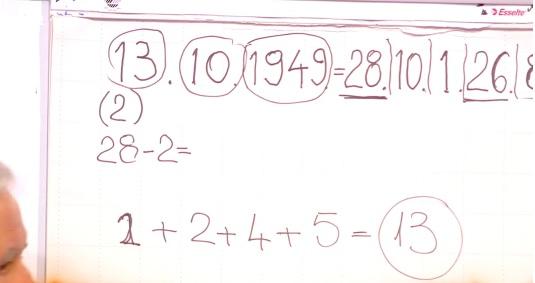 Esselte
13.10.1949.=28.|10.|1.|26.|8
(2)
28-2=
1+2+4+5=13